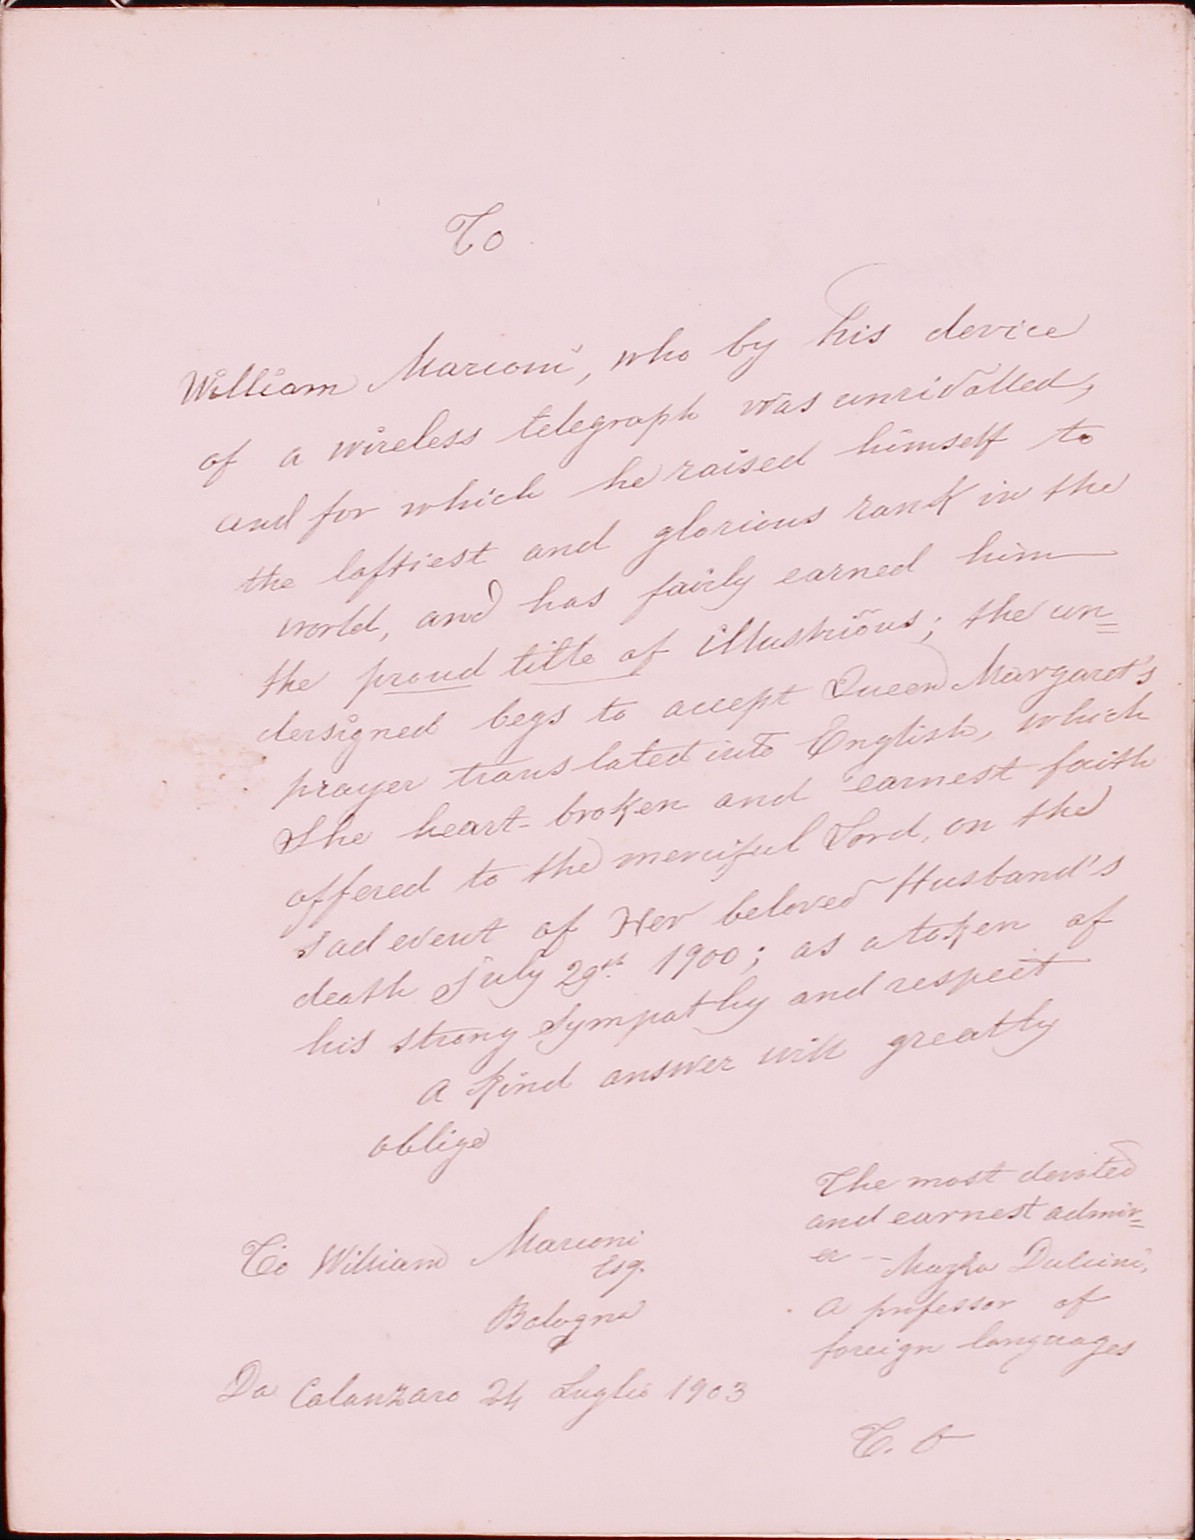 To
William Marconi, who by his device
of a wireless telegraph was unrivalled,
and for which he raised himself to
the loftiest and glorious rank in the
world, and has fairly earned him
the proud title of illustrious; the un=
dersigned begs to accept Queen Margaret's
prayer translated into English, which
She heart-broken and earnest faith
offered to the merciful Lord, on the
sad event of Her beloved Husband's
death July 29th 1900; as a token of
his strong sympathy and respect
a kind answer will greatly
oblige
The most devoted
and earnest admir=
er -
a professor of
foreign languages
To William Marconi
Esq.
Bologna
Da Catanzaro 24 Luglio 1903
T. O